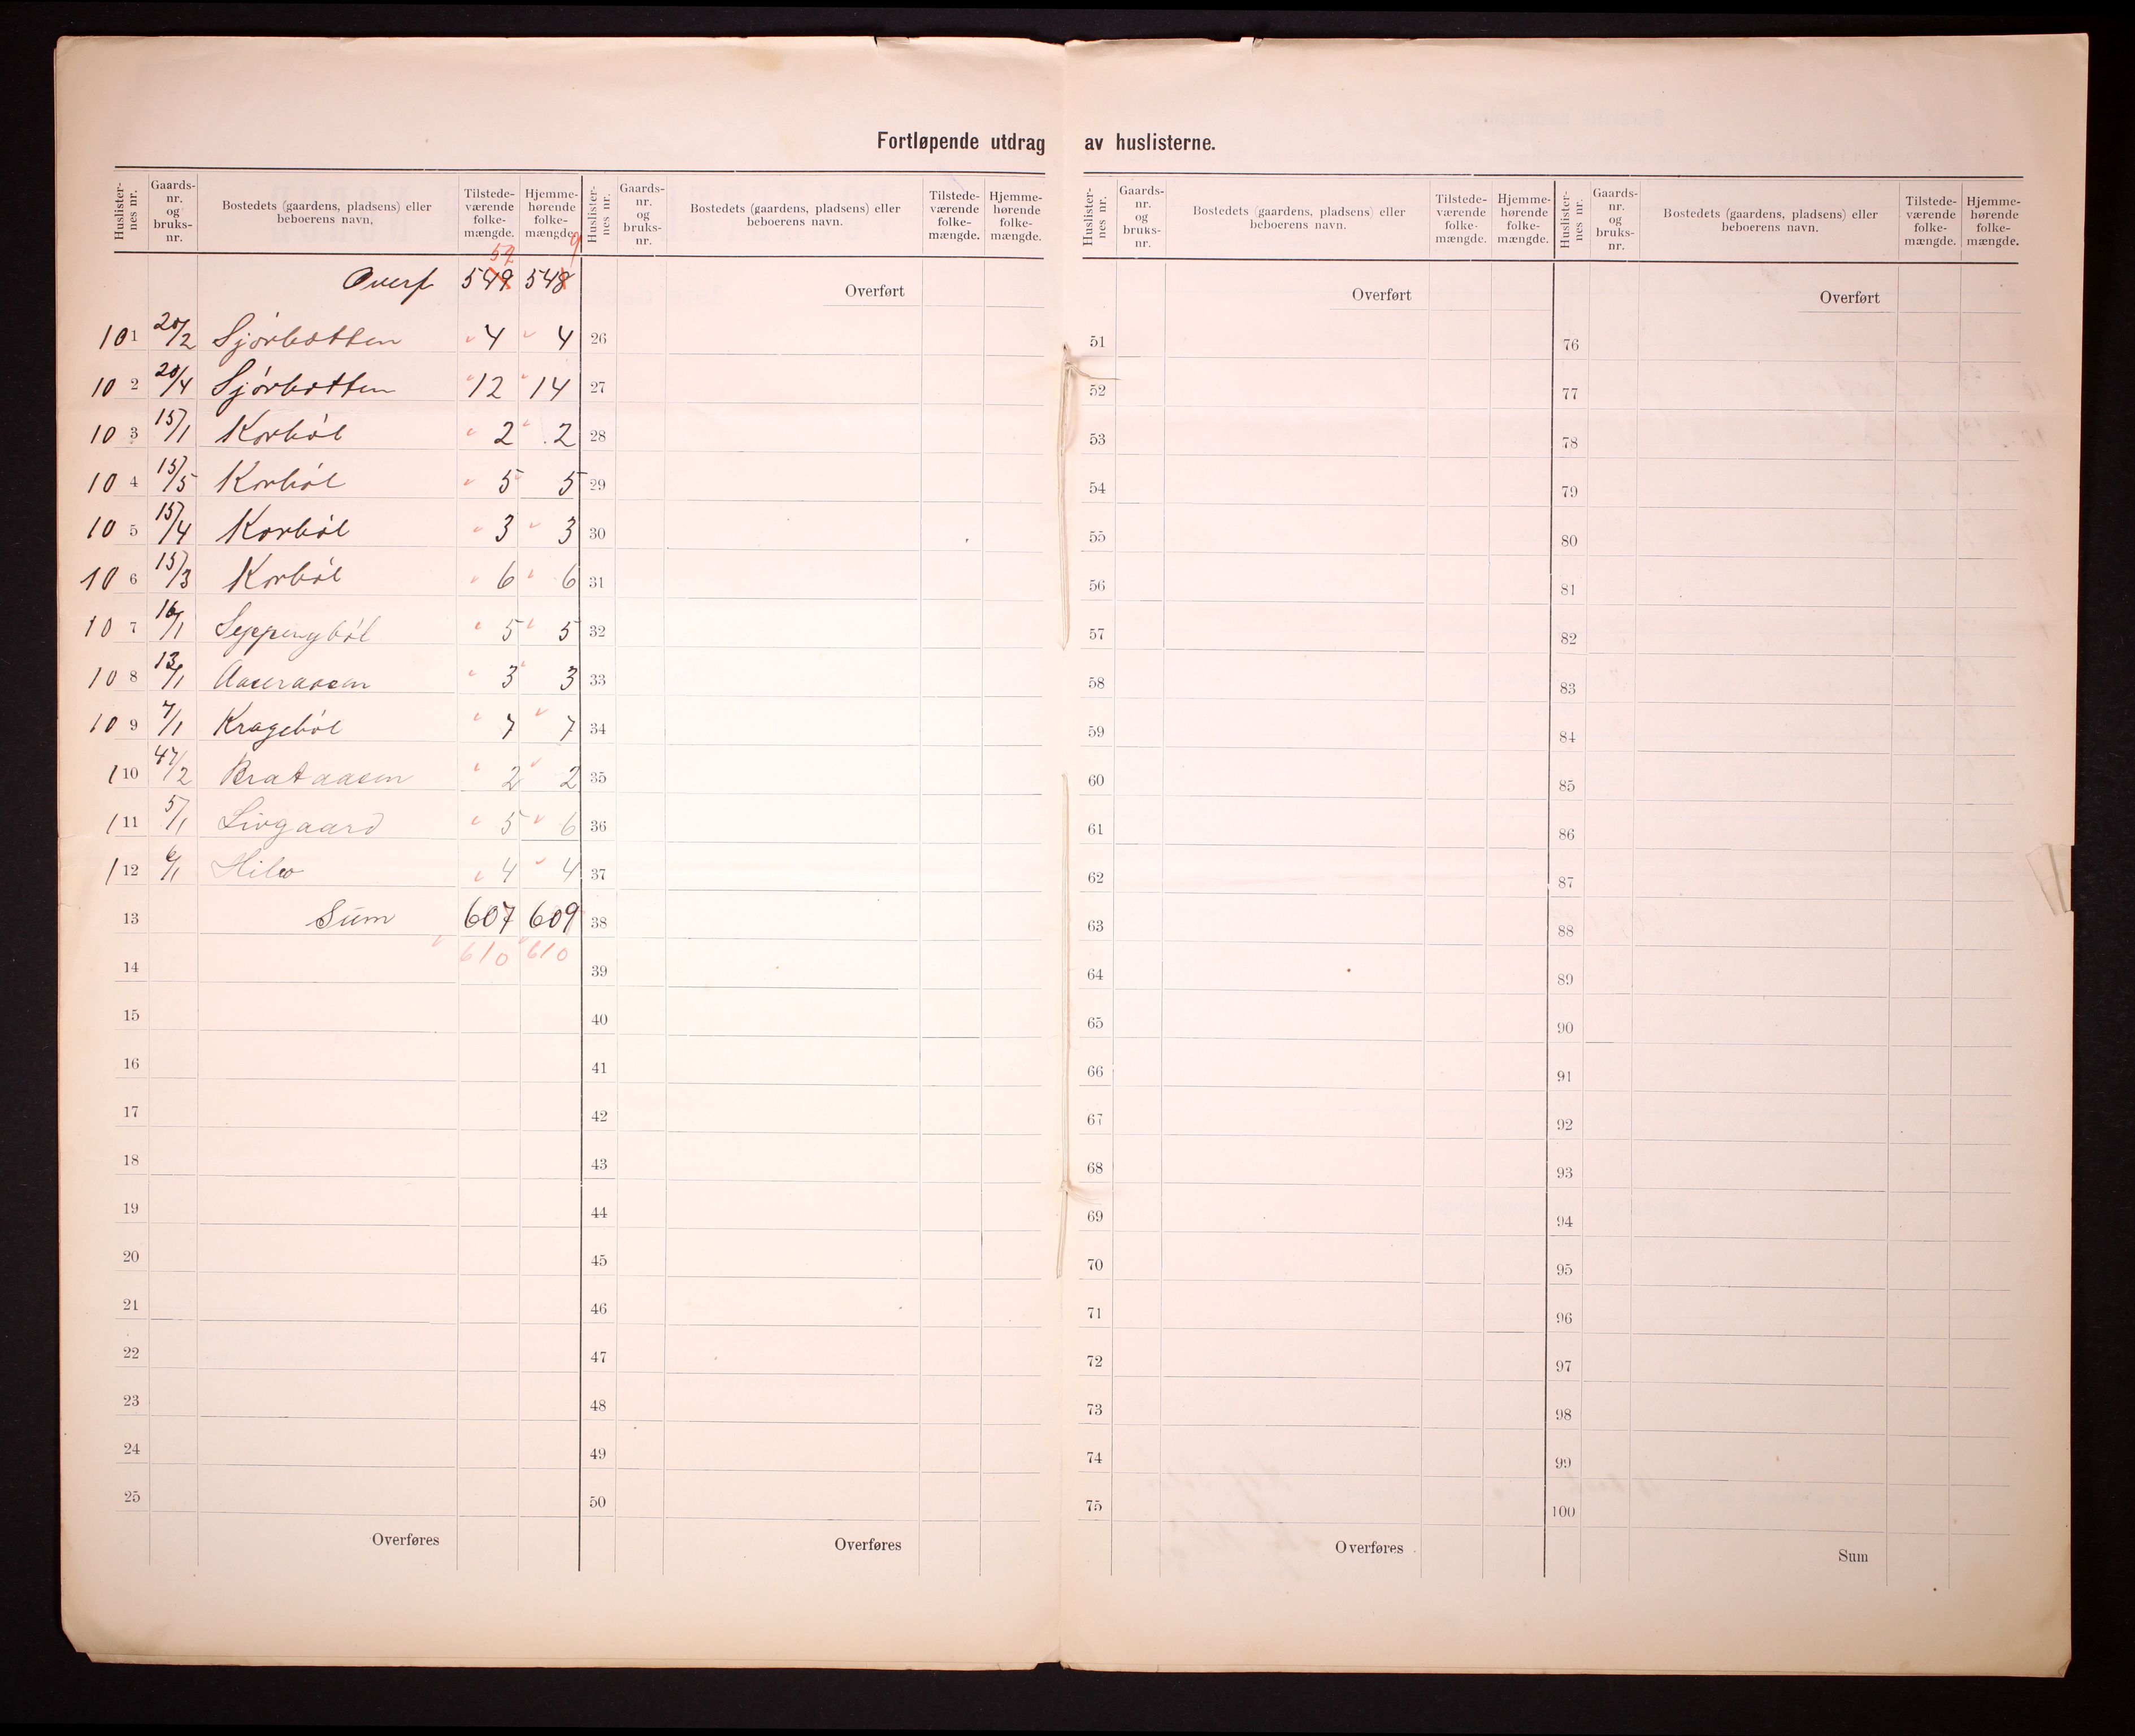 Fortløpende utdrag av huslisterne.
Huslisternes nr. Gaards-nr. og bruks-nr. Bostedets (gaardens, pladsens) eller beboerens navn. Tilstedeværende folkemængde. Hjemmehørende folkemængde.
52 9
Overf 549 548
101 20/2 Sjørbotten 4 4
102 20/4 Sjørbotten 12 14
103 15/1 Korbøl 2 2
104 15/5 Korbøl 5 5
105 15/4 Korbøl 3 3
106 15/3 Korbøl 6 6
107 16/1 5 5
108 13/1 3 3
109 7/1 Kragebøl 7 7
110 47/2 Brataasen 2 2
111 5/1 Livgaard 5 6
112 6/1 Hilw 4 4
13 Sum 607 609
610 610
14
15
16
17
18
19
20
21
22
23
24
25
Overføres
Huslisternes nr. Gaards-nr. og bruks-nr. Bostedets (gaardens, pladsens) eller beboerens navn. Tilstedeværende folkemængde. Hjemmehørende folkemængde.
Overført
26
27
28
29
30
31
32
33
34
35
36
37
38
39
40
41
42
43
44
45
46
47
48
49
50
Overføres
Huslisternes nr. Gaards-nr. og bruks-nr. Bostedets (gaardens, pladsens) eller beboerens navn. Tilstedeværende folkemængde. Hjemmehørende folkemængde.
Overført
51
52
53
54
55
56
57
58
59
60
61
62
63
64
65
66
67
68
69
70
71
72
73
74
75
Overføres
Huslisternes nr. Gaards-nr. og bruks-nr. Bostedets (gaardens, pladsens) eller beboerens navn. Tilstedeværende folkemængde. Hjemmehørende folkemængde.
Overført
76
77
78
79
80
81
82
83
84
85
86
87
88
89
90
91
92
93
94
95
96
97
98
99
100
Sum